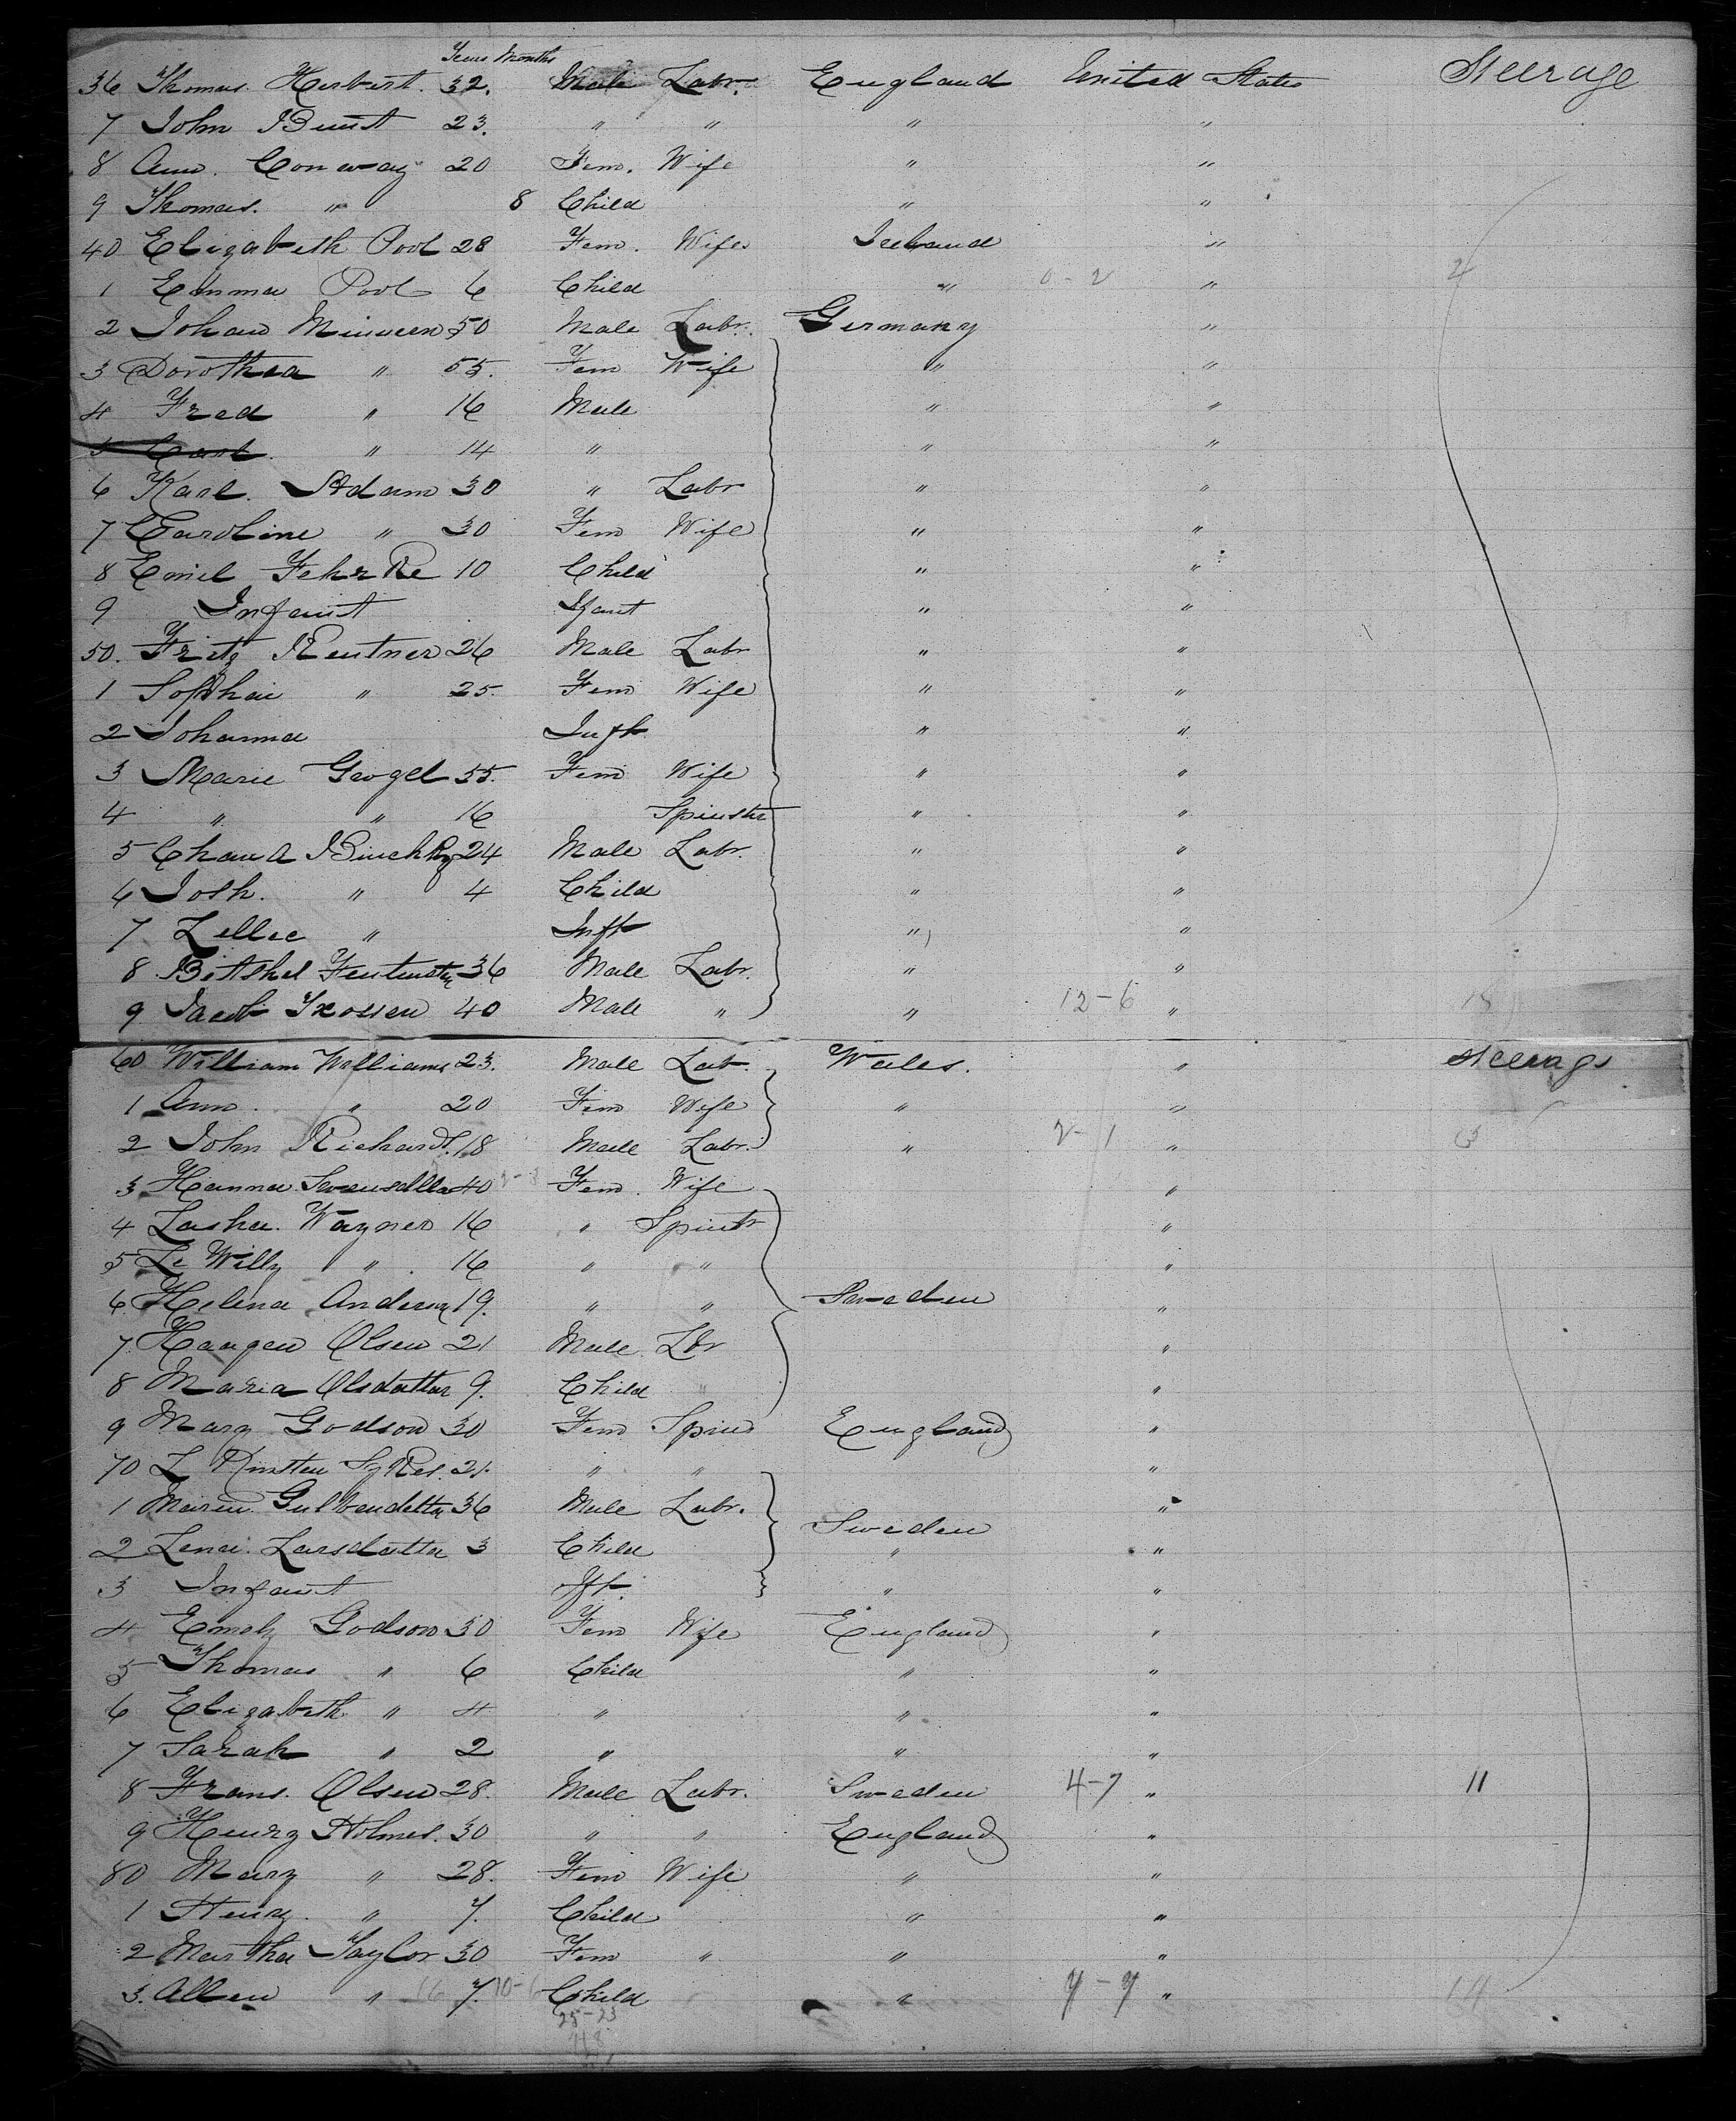 Years Months
36 Thomas Herbert. 32. Male Labr. England United States Steerage
7 John Bunt 23. " " " "
8 Ann. Conway 20 Fem. Wife " "
9 Thomas. " 8 Child " "
40 Elizabeth Pool 28 Fem. Wife Ireland "
1 Emma Pool 6 Child " 0-2 " 2
2 Johan 50 Male Labr. Germany "
3 Dorothea " 55. Fem Wife " "
4 Fred " 16 Male " "
5 Carl. " 14 " " "
6 Karl. Adam 30 " Labr " "
7 Caroline " 30 Fem Wife " "
8 Emil Fehrke 10 Child " "
9 Infant Ifant " "
50. Fritz Rentner 26 Male Labr " "
1 Sophai " 25. Fem Wife " "
2 Johanna Inft " "
3 Marie Gevgel 55. Fem Wife " "
4 " " 16 Spinster " "
5 24 Male Labr. " "
6 Josh. " 4 Child " "
7 Zellee " Inft " "
8 36 Male Labr. " "
9 Jacob 40 Male " " 12-6 " 18
60 William Williams 23. Male Lab. Wales. " Steerage
1 Ann. " 20 Fem Wife " "
2 John Richards. 18 Male Labr. " 2-1 " 3
3 Hanna 40 Fem. Wife "
4 Lasha. Wagner 16 " Spinstr "
5 Le Willy " . 16 " " "
6. Helena Anderson 19. " " Sweden "
7 Haagen Olsen 21 Male Lbr "
8 Maria Olsdatter 9. Child " "
9 Mary Godson 30 Fem Spins England "
70 L Sykes. 21. " " "
1 Maren 36 Male Labr. Sweden "
2 Lena. Larsdatter 3 Child " "
3 Infant Ift. " "
4 Emely Godson 30 Fem Wife England "
5 Thomas " 6 Child " "
6 Elizabeth " 4 " " "
7 Sarah " 2 " " "
8 Frans. Olsen 28. Male Labr. Sweden 4-7 " 11
9 Henry Holmes. 30 " " England "
80 Mary " 28. Fem Wife " "
1 Henry. " 7. Child " "
2 Martha Taylor 30 Fem " " "
3. Allen " 16 7. 10- Child " 7-7 " 14
25-23
48